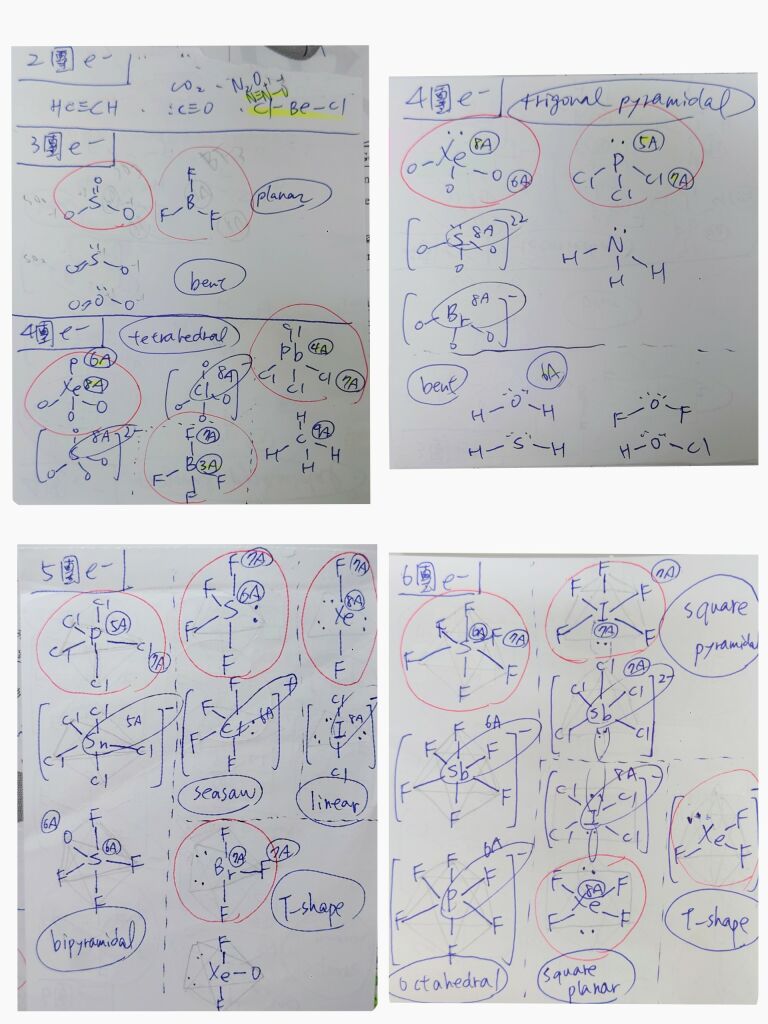 2團e-
CO2
N2O
HC≡CH
:C≡O
N=N-O
Cl-Be-Cl
3團e-
O
O S O
F
F B F
planar
O S O
bent
O O O
4團e-
tetrahedral
6A
Xe 8A
O O
O
[O Cl O O 8A]-
Cl
Pb 4A
Cl Cl Cl 7A
[O S O O 8A]2-
F 7A
B 3A
F F F
H
C 4A
H H H
4團e-
trigonal pyramidal
Xe 8A
O O O 6A
P 5A
Cl Cl Cl 7A
[O S O O 8A]2-
N
H H H
[O Br O O 8A]-
bent
6A
H-O-H
F-O-F
H-S-H
H-O-Cl
5團e-
Cl
Cl P 5A
Cl Cl 7A
Cl
F 7A
F S 6A :
F
F
F 7A
Xe 8A
F
[Cl Cl Sn Cl Cl Cl 5A]-
[F F Cl F F 6A]+
[Cl I Cl 8A]-
seasaw
linear
6A O
F
S 6A
F F
F
F
Br 7A F 7A
F
T-shape
bipyramidal
F
Xe-O
F
6團e-
F
F S 6A F 7A
F F F
F 7A
F I F
F 7A F
square
pyramidal
[Cl Cl Sb Cl Cl Cl 7A]2-
[F F F Sb F F F 6A]-
[Cl Cl I Cl Cl 8A]-
[F Xe F F]-
[F F F P F F F 6A]-
8A
F F
Xe
F F
T-shape
octahedral
square
planar